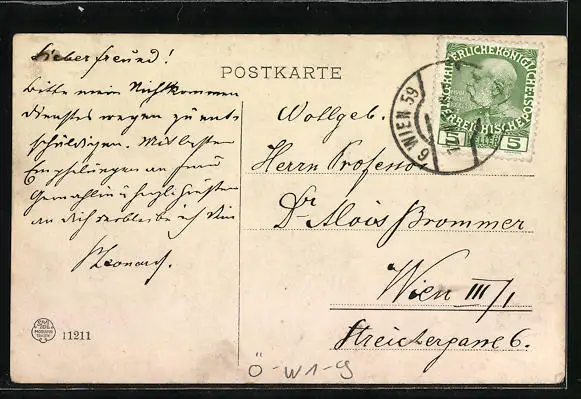 POSTKARTE
Lieber Freund!
Bitte mein Nichtkommen
Dienstes wegen zu ent-
schuldigen. Mit besten
Empfehlungen an Frau
Gemahlin u herzl. Grüßen
an Dich verbleibe ich Dein
Leonard.
11211
KAISERLICHEKÖNIGLICHE
ÖSTERREICHISCHE POST
5 HELLER 5
9 WIEN 59
Wollgeb.
Herrn Professor
Dr Alois Brommer
Wien III/1
Streichergasse 6.
Ö-W1-9